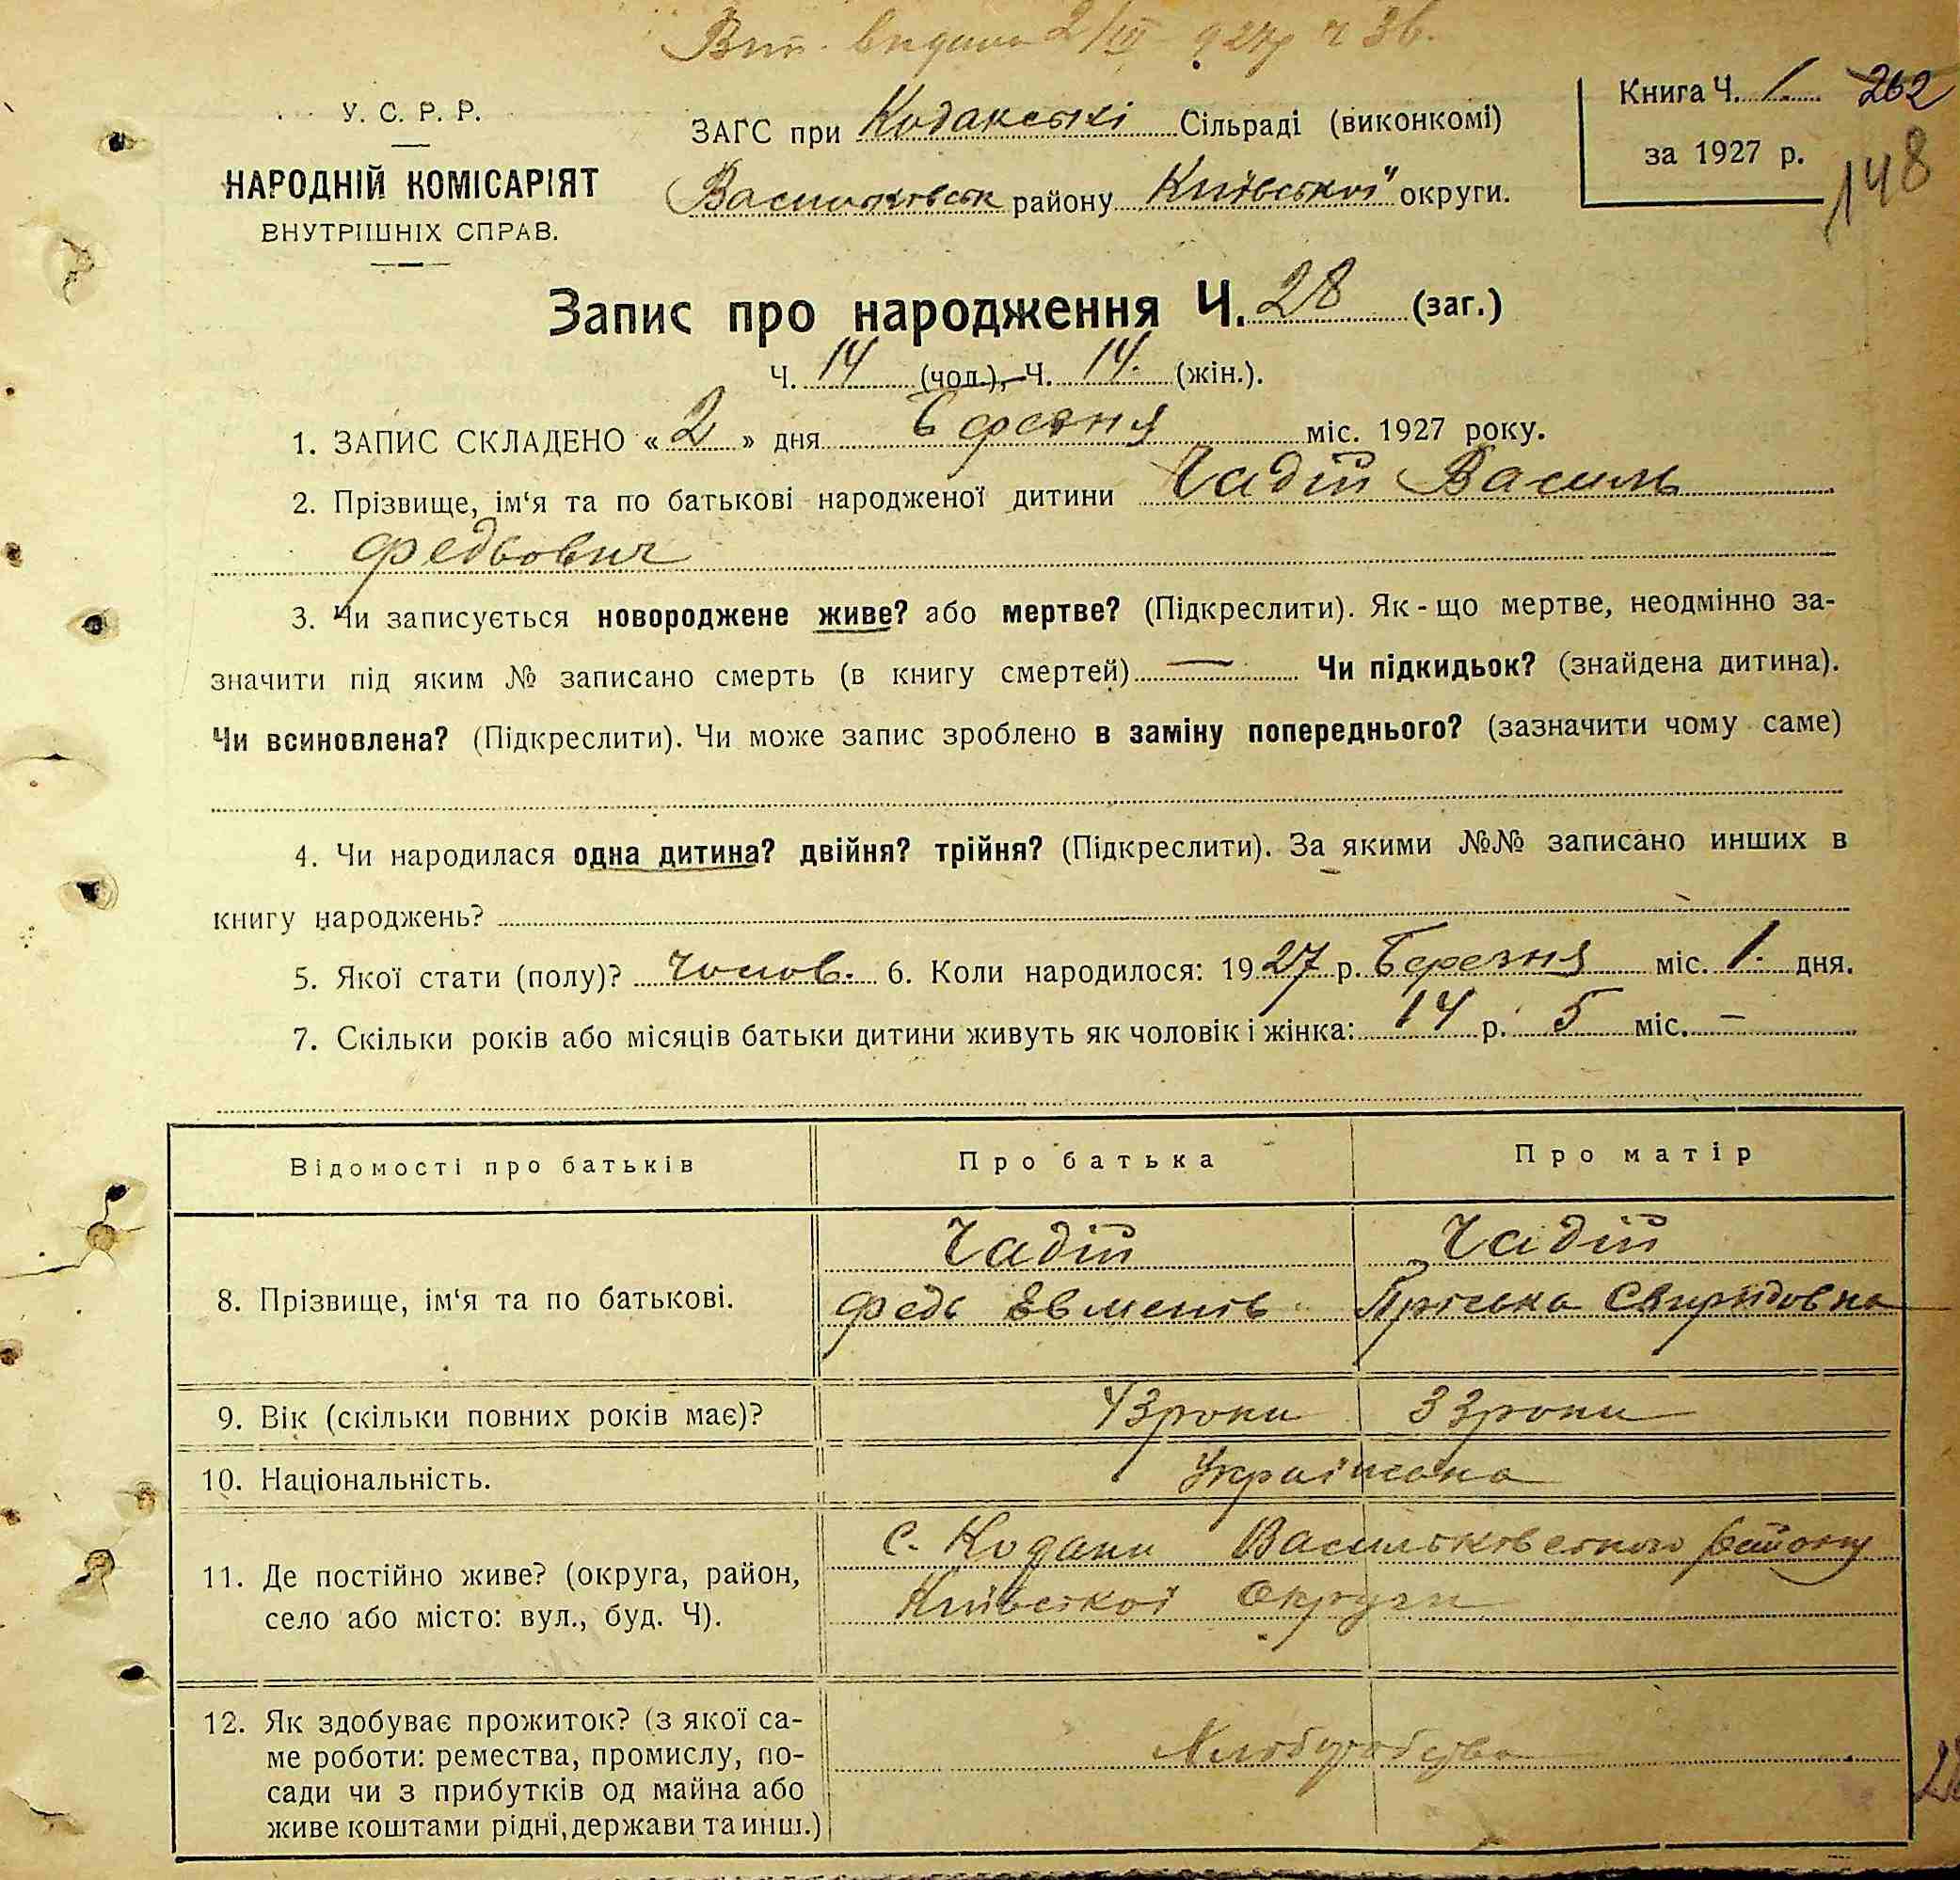 Вип. видана 2/III 927р ч 36.
У. С. Р. Р.
НАРОДНІЙ КОМІСАРІЯТ
ВНУТРІШНІХ СПРАВ.
ЗАГС при Кодакські Сільраді (виконкомі)
Васильківськ району Київської округи.
Книга Ч. 1. 262
за 1927 р.
148
Запис про народження Ч. 28 (заг.)
Ч. 14 (чол.), Ч. 14. (жін.).
1. ЗАПИС СКЛАДЕНО « 2 » дня Березня міс. 1927 року.
2. Прізвище, ім‘я та по батькові народженої дитини Чадій Василь
Федьович
3. Чи записується новороджене живе? або мертве? (Підкреслити). Як-що мертве, неодмінно за-
значити під яким № записано смерть (в книгу смертей) — Чи підкидьок? (знайдена дитина).
Чи всиновлена? (Підкреслити). Чи може запис зроблено в заміну попереднього? (зазначити чому саме)
4. Чи народилася одна дитина? двійня? трійня? (Підкреслити). За якими №№ записано инших в
книгу народжень?
5. Якої стати (полу)? чолов. 6. Коли народилося: 1927 р. Березня міс. 1. дня.
7. Скільки років або місяців батьки дитини живуть як чоловік і жінка: 14 р. 5 міс. —
Відомості про батьків Про батька Про матір
Чадій Чадій
8. Прізвище, ім‘я та по батькові. Федь Евменів Пріська Свирідовна
9. Вік (скільки повних років має)? 43 роки 33 роки
10. Національність. Українська
11. Де постійно живе? (округа, район, С. Кодаки Васильківського району
село або місто: вул., буд. Ч). Київської Округи
12. Як здобуває прожиток? (з якої са-
ме роботи: ремества, промислу, по- Хлоборобство
сади чи з прибутків од майна або
живе коштами рідні, держави та инш.)